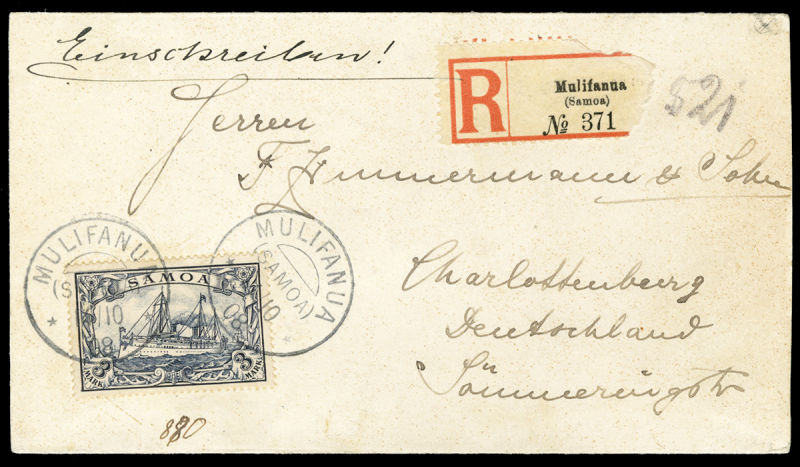 Einschreiben!
R
Mulifanua
(Samoa)
№ 371
521
Herren
F. Zimmermann & Sohn
Charlottenburg
Deutschland
Sömmeringstr
MULIFANU
S
/10
8
MULIFANUA
(SAMOA)
10
08
SAMOA
3
MARK
3
MARK
880